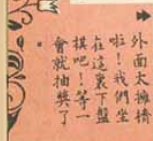 外面太擁擠
啦！我們坐
在這裏下盤
棋吧！等一
會就抽獎了